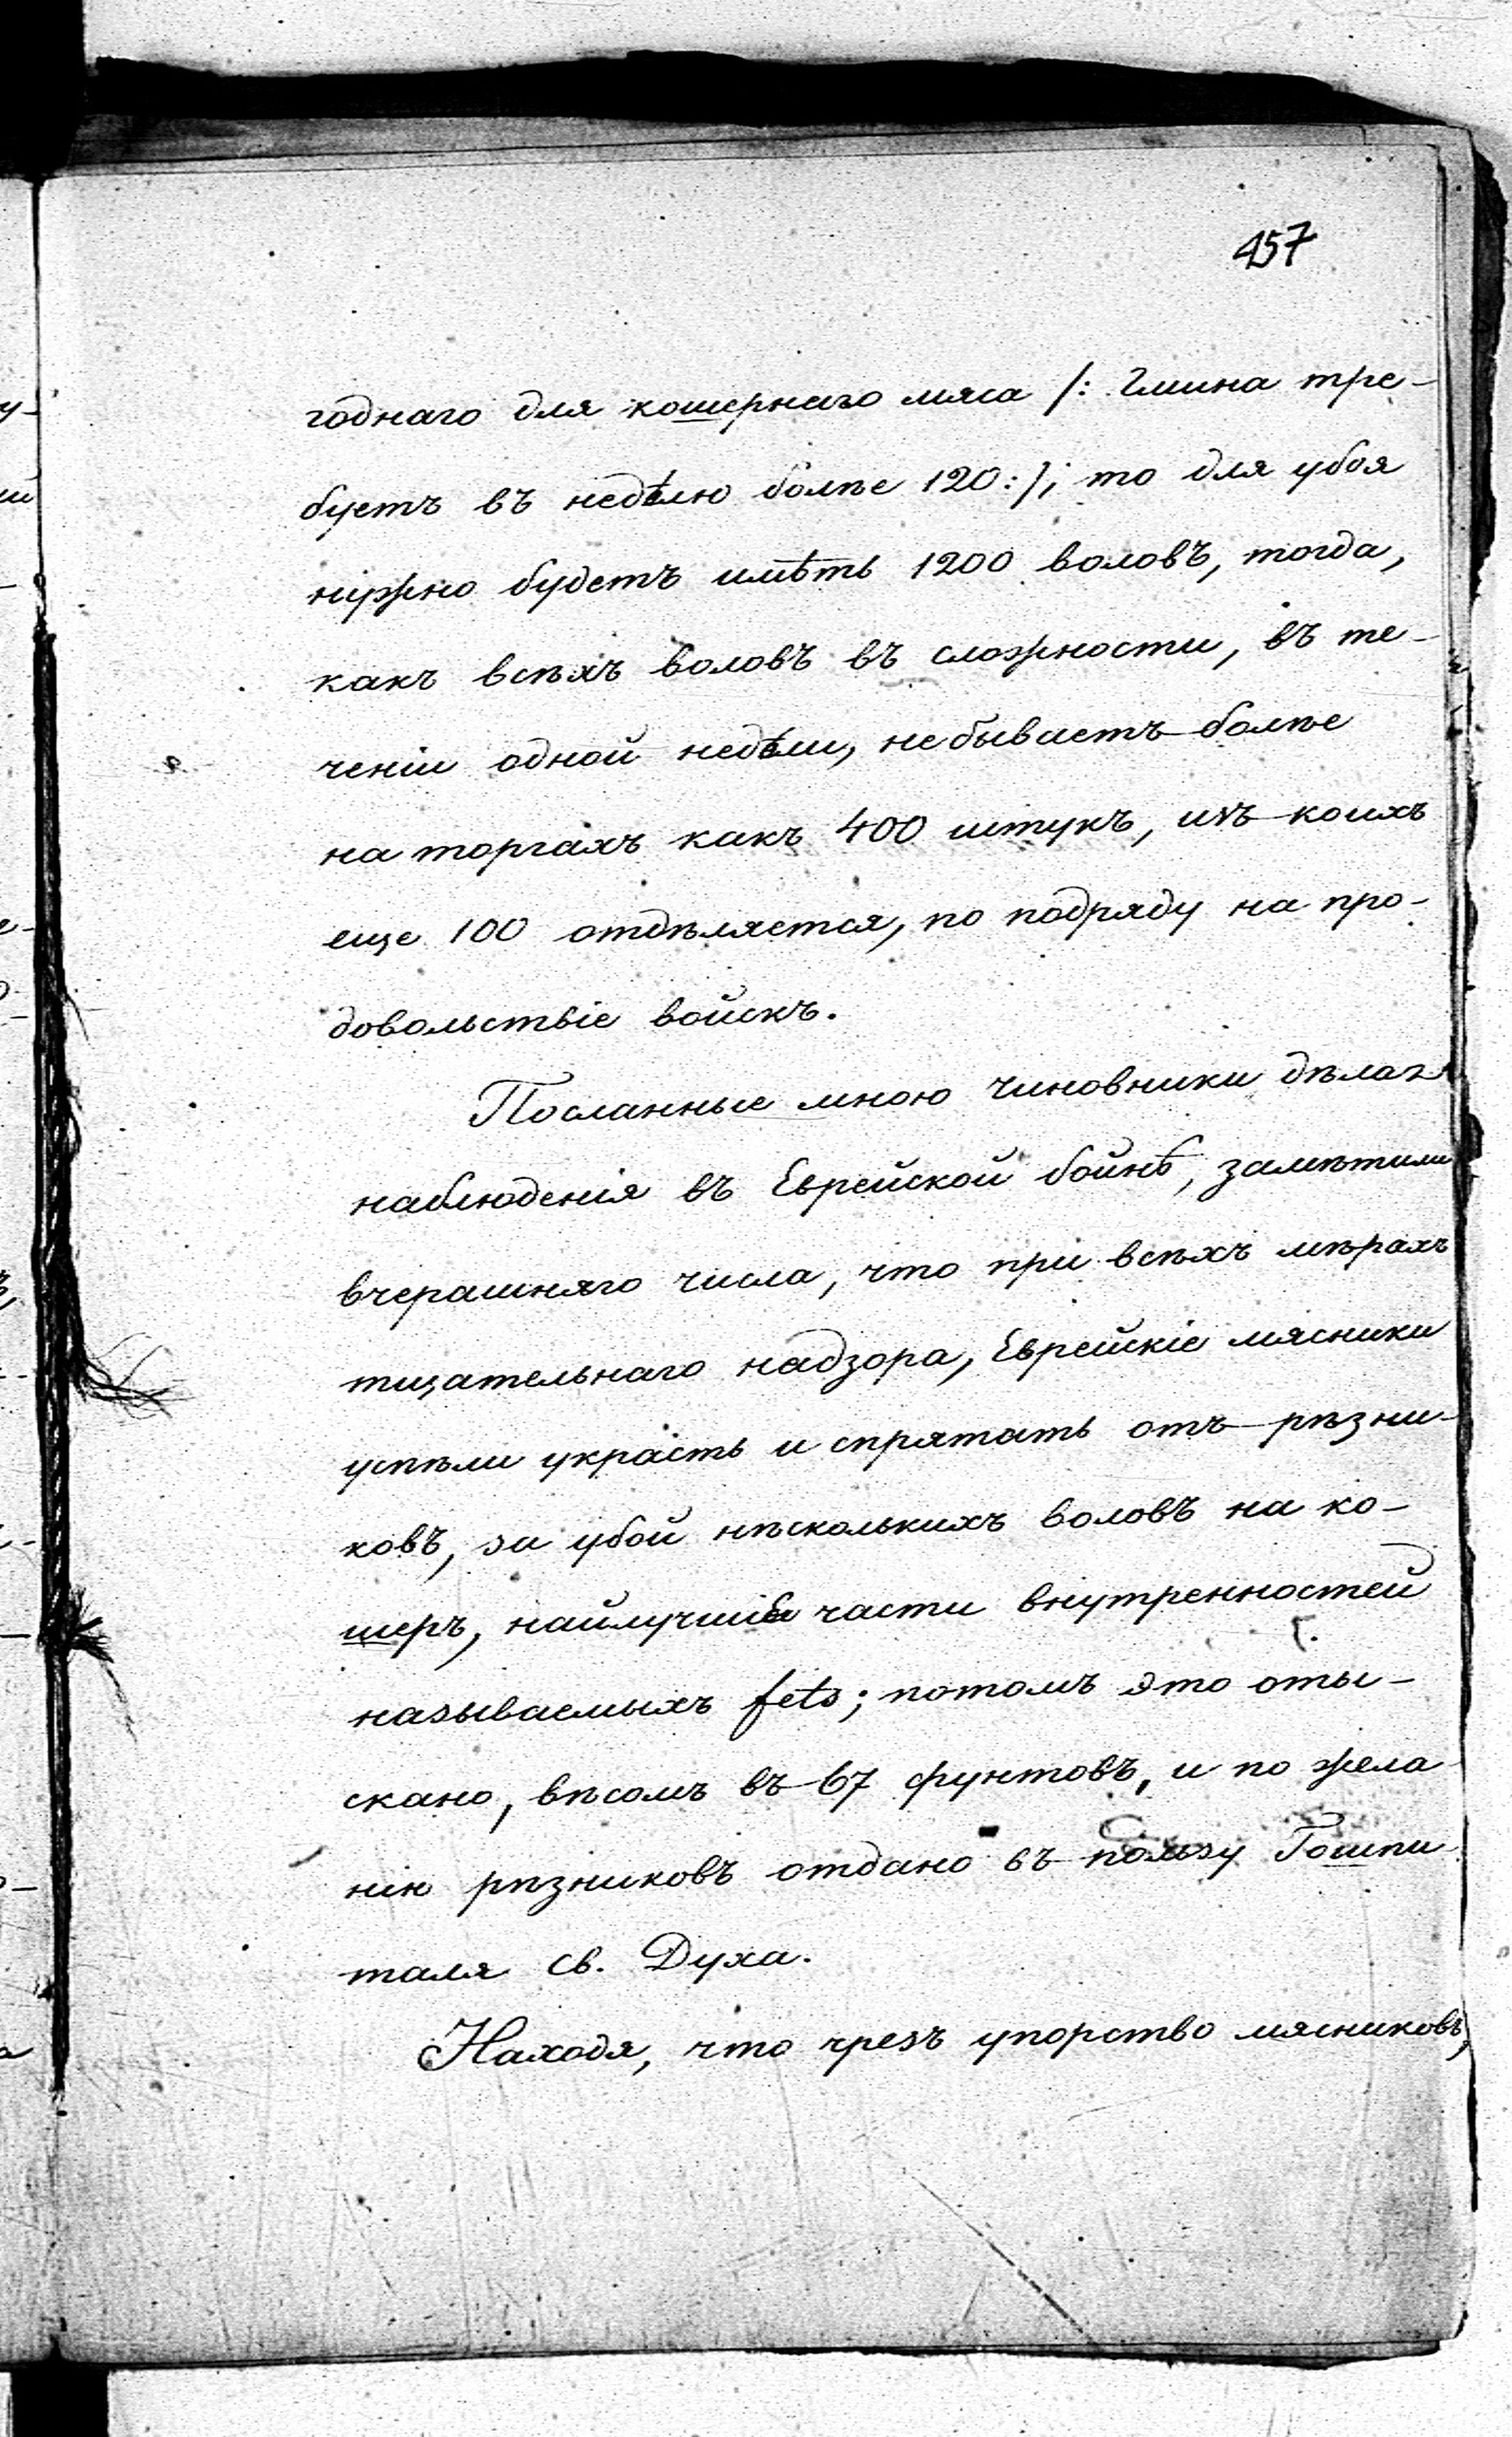 457
годнаго для кошернаго мяса /: Гмина тре-
буетъ въ недѣлю болѣе 120:/; то для убоя
нужно будетъ имѣть 1200 воловъ, тогда,
какъ всѣхъ воловъ въ сложности, въ те-
ченіи одной недѣли, не бываетъ болѣе
на торгахъ какъ 400 штукъ, изъ коихъ
еще 100 отдѣляется, по подряду на про-
довольствіе войскъ.
Посланные мною чиновники дѣлать
наблюденія въ Еврейской бойнѣ, замѣтили
вчерашняго числа, что при всѣхъ мѣрахъ
тщательнаго надзора, Еврейскіе мясники
успѣли украсть и спрятать отъ рѣзни-
ковъ, за убой нѣсколькихъ воловъ на ко-
шеръ, найлучшіе части внутренностей
называемыхъ fets; потомъ это оты-
скано, вѣсомъ въ 67 фунтовъ, и по жела
нію рѣзниковъ отдано въ пользу Гошпи
таля Св. Духа.
Находя, что чрезъ упорство мясниковъ,